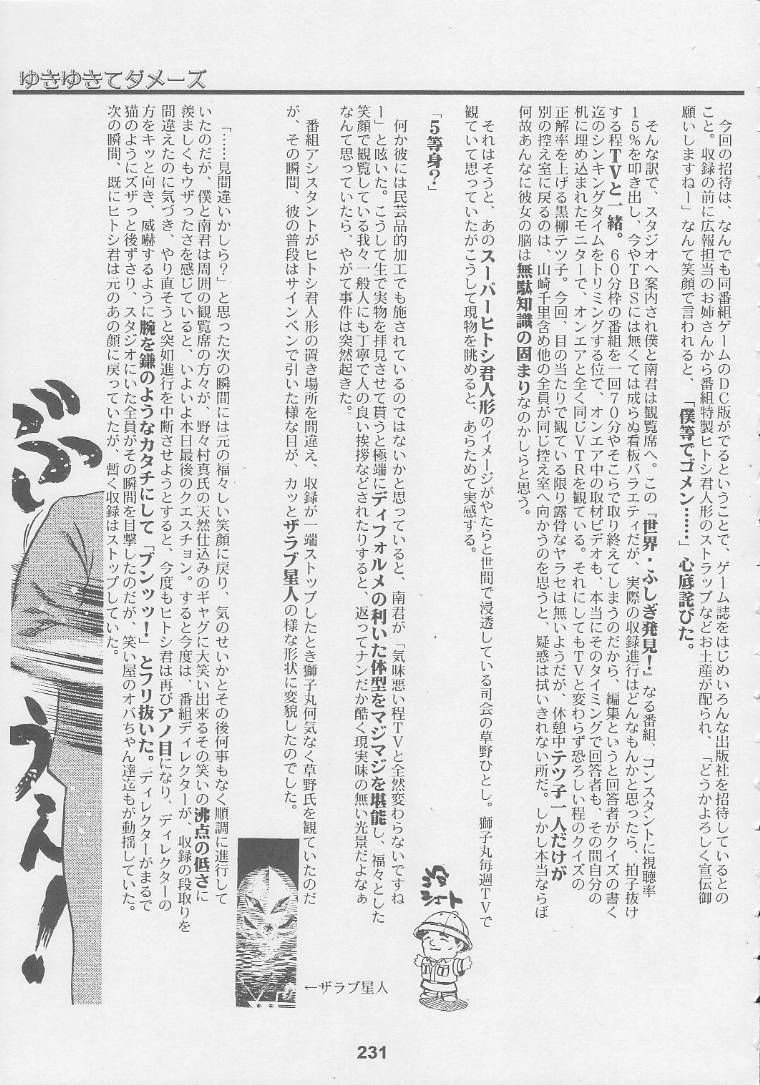 ゆきゆきてダメーズ
　今回の招待は、なんでも同番組ゲームのDC版がでるということで、ゲーム誌をはじめいろんな出版社を招待しているとの
こと。収録の前に広報担当のお姉さんから番組特製ヒトシ君人形のストラップなどお土産が配られ、「どうかよろしく宣伝御
願いしますねー」なんて笑顔で言われると、「僕等でゴメン……」心底詫びた。
　そんな訳で、スタジオへ案内され僕と南君は観覧席へ。この『世界・ふしぎ発見！』なる番組、コンスタントに視聴率
15％を叩き出し、今やTBSには無くては成らぬ看板バラエティだが、実際の収録進行はどんなもんかと思ったら、拍子抜け
する程TVと一緒。60分枠の番組を一回70分やそこらで取り終えてしまうのだから、編集というと回答者がクイズの書く
迄のシンキングタイムをトリミングする位で、オンエア中の取材ビデオも、本当にそのタイミングで回答者も、その間自分の
机に埋め込まれたモニターで、オンエアと全く同じVTRを観ている。それにしてもTVと変わらず恐ろしい程のクイズの
正解率を上げる黒柳テツ子。今回、目の当たりで観ている限り露骨なヤラセは無いようだが、休憩中テツ子一人だけが
別の控え室に戻るのは、山崎千里含め他の全員が同じ控え室へ向かうのを思うと、疑惑は拭いきれない所だ。しかし本当ならば
何故あんなに彼女の脳は無駄知識の固まりなのかしらと思う。
　それはそうと、あのスーパーヒトシ君人形のイメージがやたらと世間で浸透している司会の草野ひとし。獅子丸毎週TVで
観ていて思っていたがこうして現物を眺めると、あらためて実感する。
「5等身？」
　何か彼には民芸品的加工でも施されているのではないかと思っていると、南君が「気味悪い程TVと全然変わらないですね
ー」と呟いた。こうして生で実物を拝見させて貰うと極端にディフォルメの利いた体型をマジマジを堪能し、福々とした
笑顔で観覧している我々一般人にも丁寧で人の良い挨拶などされたりすると、返ってナンだか酷く現実味の無い光景だよなぁ
なんて思っていたら、やがて事件は突然起きた。
　番組アシスタントがヒトシ君人形の置き場所を間違え、収録が一端ストップしたとき獅子丸何気なく草野氏を観ていたのだ
が、その瞬間、彼の普段はサインペンで引いた様な目が、カッとザラブ星人の様な形状に変貌したのでした。
　「……見間違いかしら？」と思った次の瞬間には元の福々しい笑顔に戻り、気のせいかとその後何事もなく順調に進行して
いたのだが、僕と南君は周囲の観覧席の方々が、野々村真氏の天然仕込みのギャグに大笑い出来るその笑いの沸点の低さに
羨ましくもウザったさを感じていると、いよいよ本日最後のクエスチョン。すると今度は、番組ディレクターが、収録の段取りを
間違えたのに気づき、やり直そうと突如進行を中断させようとすると、今度もヒトシ君は再びアノ目になり、ディレクターの
方をキッと向き、威嚇するように腕を鎌のようなカタチにして「ブンッッ！」とフリ抜いた。ディレクターがまるで
猫のようにズザっと後ずさり、スタジオにいた全員がその瞬間を目撃したのだが、笑い屋のオバちゃん達迄もが動揺していた。
次の瞬間、既にヒトシ君は元のあの顔に戻っていたが、暫く収録はストップしていた。
←ザラブ星人
231